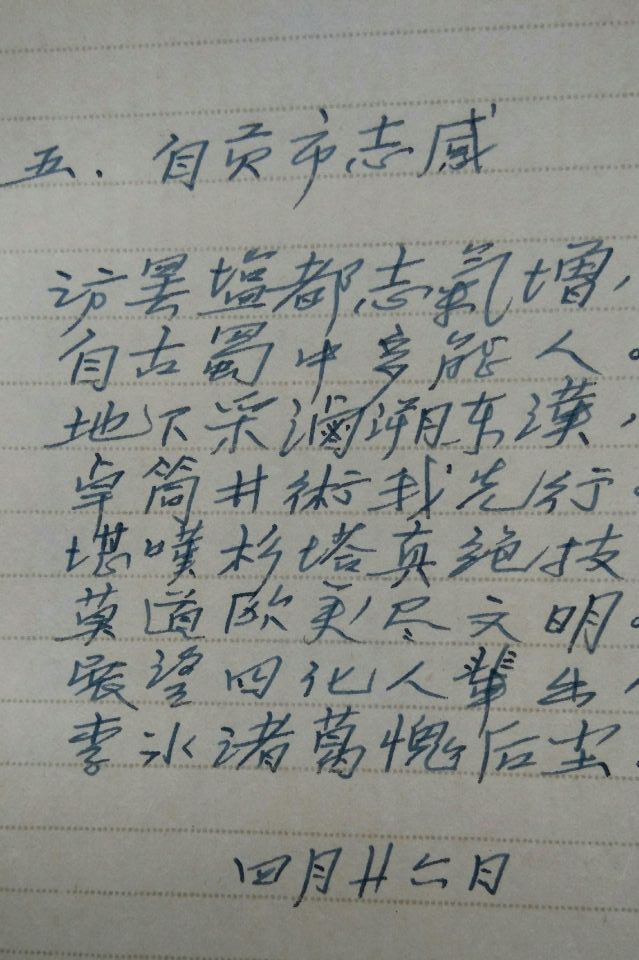 五.自贡市志感
访畧塩都志氣增,
自古蜀中多能人。
地下采滷溯东漢,
卓筒井術我先行。
堪嘆杉塔真絶技
莫道欧美尽文明。
展望四化人輩出,
李冰诸葛愧后尘.
四月廿六日